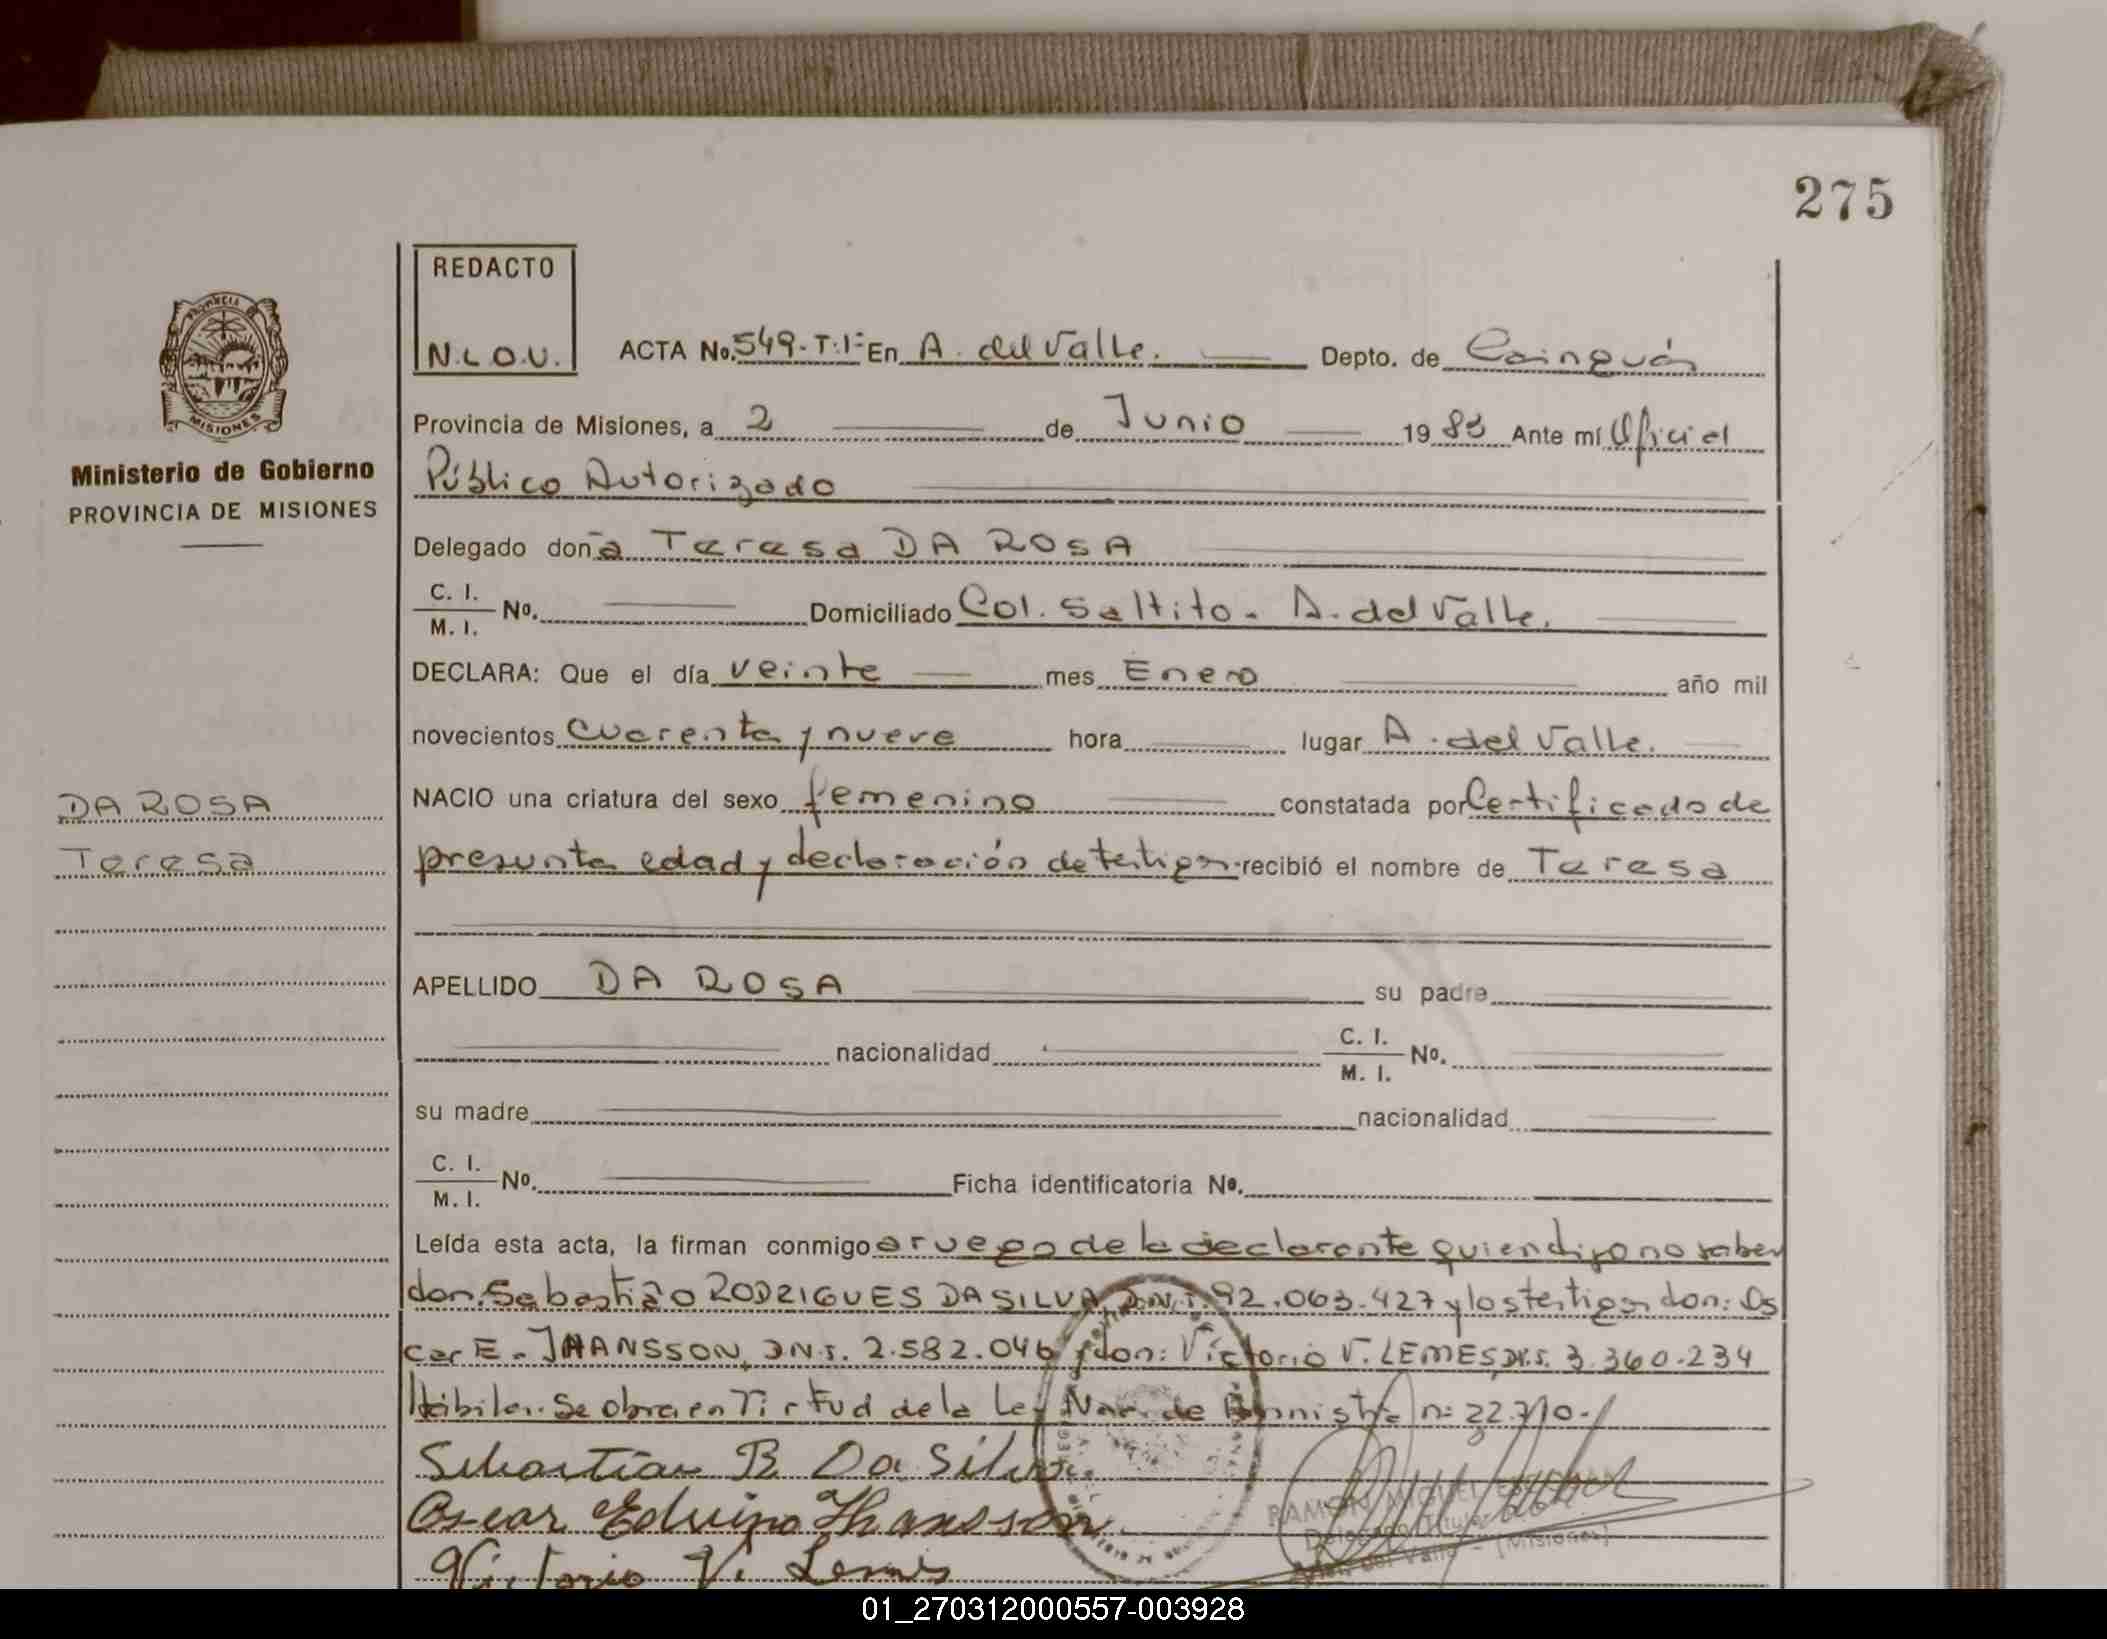 275
REDACTO
N.L.O.V.
PROVINCIA
MISIONES
Ministerio de Gobierno
PROVINCIA DE MISIONES
ACTA No. 549-T:1º En A. del Valle. Depto. de Cainguás
Provincia de Misiones, a 2 de Junio 1983 Ante mí Oficial
Público Autorizado
Delegado doña Teresa DA ROSA
C. I.
M. I. No. Domiciliado Col. Saltito - A. del Valle.
DECLARA: Que el día veinte mes Enero año mil
novecientos cuarenta y nueve hora lugar A. del Valle.
DA ROSA
NACIO una criatura del sexo femenino constatada por Certificado de
Teresa
presunta edad y declaración de testigos. recibió el nombre de Teresa
APELLIDO DA ROSA su padre
nacionalidad C. I.
M. I. No.
su madre nacionalidad
C. I.
M. I. No. Ficha identificatoria No.
Leída esta acta, la firman conmigo a ruego de la declarante quien dijo no saber
don: Sebastião RODRIGUES DA SILVA, D.N.I. 92.063.427 y los testigos don: Os
car E. JHANSSON, D.N.I. 2.582.046 y don: Victorio V. LEMES, D.N.I. 3.360.234
Hábiles. Se obra en Virtud de la Ley Nac. de Amnistía nº 22.710.
Sebastião R Da Silva
Oscar Eduino Jhansson
RAMON MIGUEL
Delegado Titular
A. del Valle - (Misiones)
Victorio V. Lemes
01_270312000557-003928